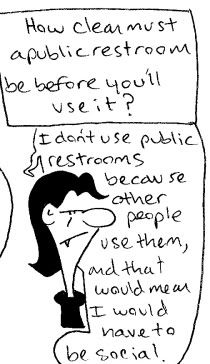 How clean must
a public restroom
be before you'll
use it?
I don't use public
restrooms
because
other
people
use them,
and that
would mean
I would
have to
be social.